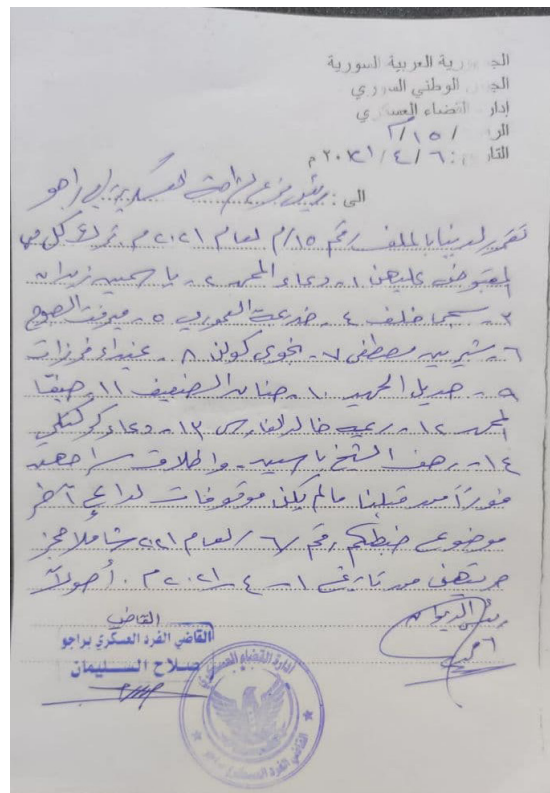 الجمهورية العربية السورية
الجيش الوطني السوري
إدارة القضاء العسكري
الرقم / ١٥/م
التاريخ: ٦ / ٤ / ٢٠٢١ م
الى: رئيس فرع الشرطة العسكرية في راجو
تقرر لدينا بالملف رقم ١٥/م لعام ٢٠٢١ م ترك كل من
المقبوض عليهن ١- دعاء المحمد ٢- ياسمين زيدان
٣- خلف ٤- العموري ٥- ميرفت
٦- شيرين مصطفى ٧- نجوى كولن ٨- غيداء فرزات
٩- هديل الحميد ١٠- حنان الضعيف ١١-
المحمد ١٢- خالد الفارس ١٣- دعاء
١٤- رهف الشيخ ياسين - واطلاق سراحهن
فوراً من قبلنا مالم يكن موقوفات لداعٍ آخر
موضوع ضبطكم رقم /٦/ لعام ٢٠٢١ شاملا حجز
حريتهن من تاريخ ١-٤-٢٠٢١ م. أصولاً
رئيس الديوان
القاضي
القاضي الفرد العسكري براجو
صلاح السليمان
إدارة القضاء العسكري
القاضي الفرد العسكري براجو